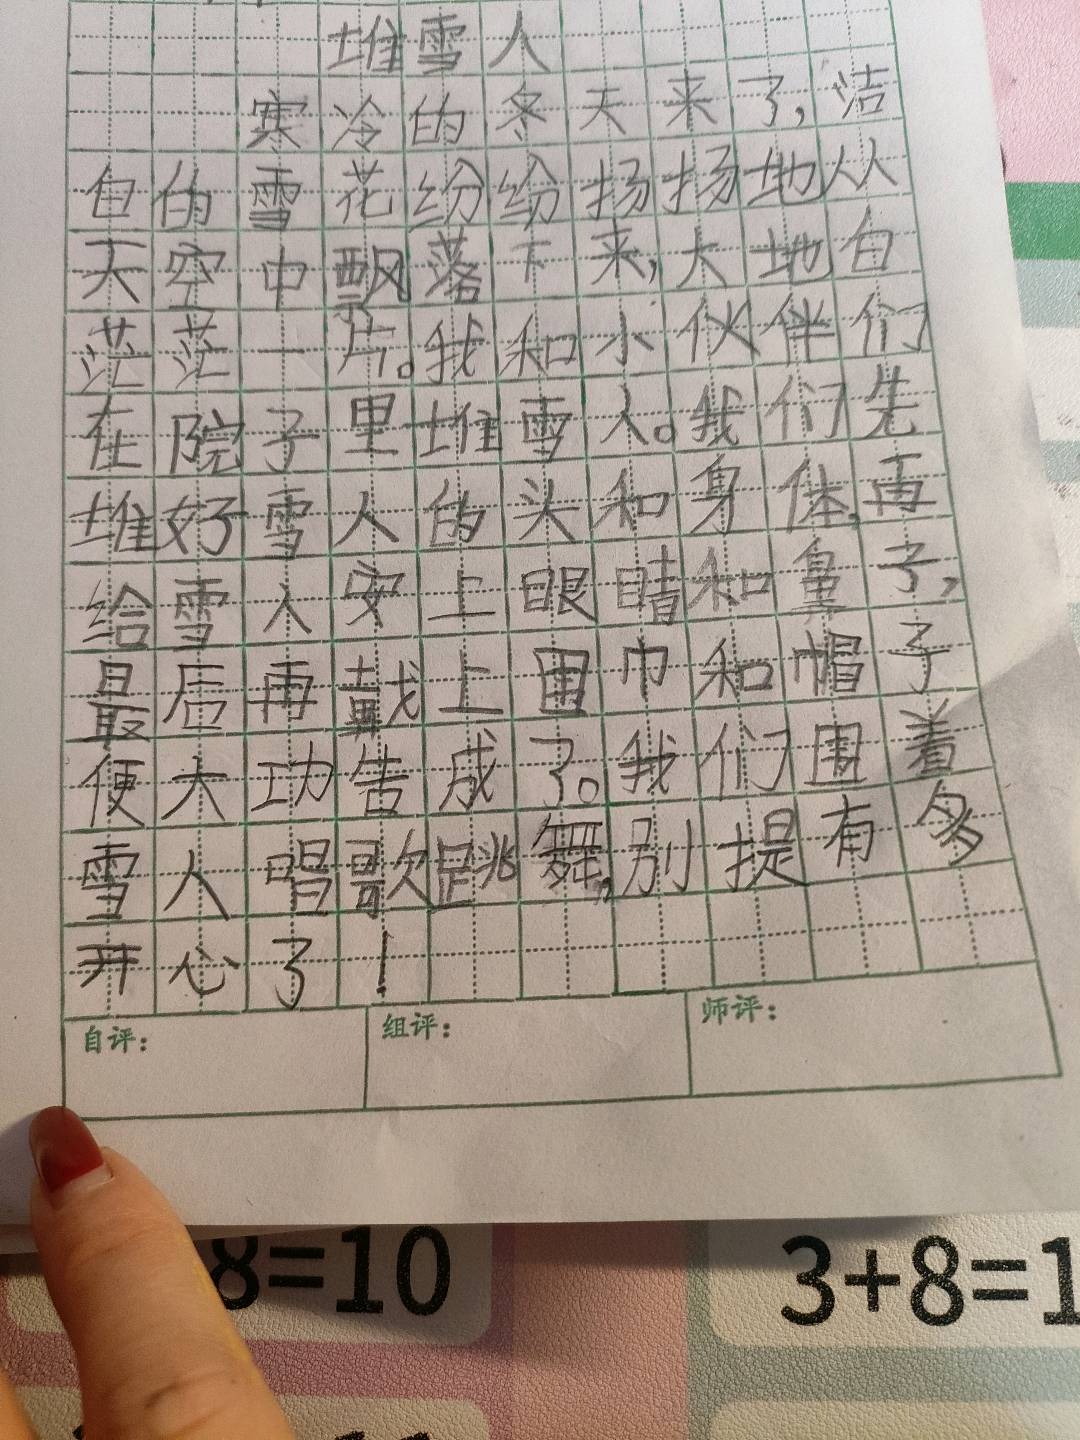 堆雪人
寒冷的冬天来了,洁
白的雪花纷纷扬扬地从
天空中飘落下来,大地白
茫茫一片。我和小伙伴们
在院子里堆雪人。我们先
堆好雪人的头和身体,再
给雪人安上眼睛和鼻子,
最后再戴上围巾和帽子
便大功告成了。我们围着
雪人唱歌跳舞,别提有多
开心了!
自评: 组评: 师评:
8=10 3+8=1